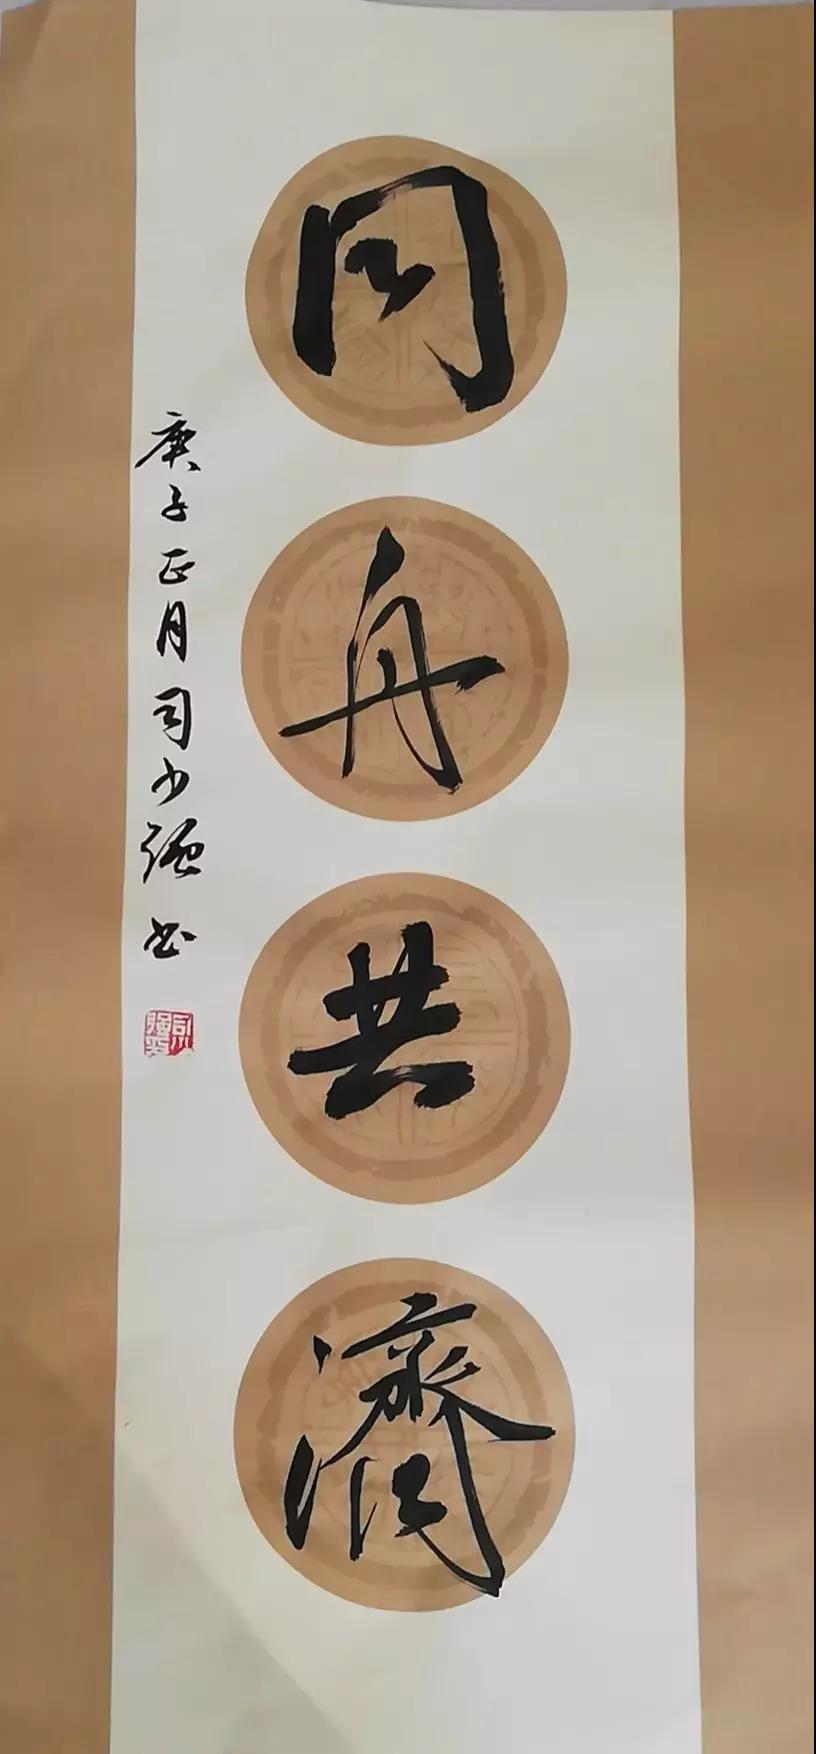 同舟共濟
庚子正月司少强书